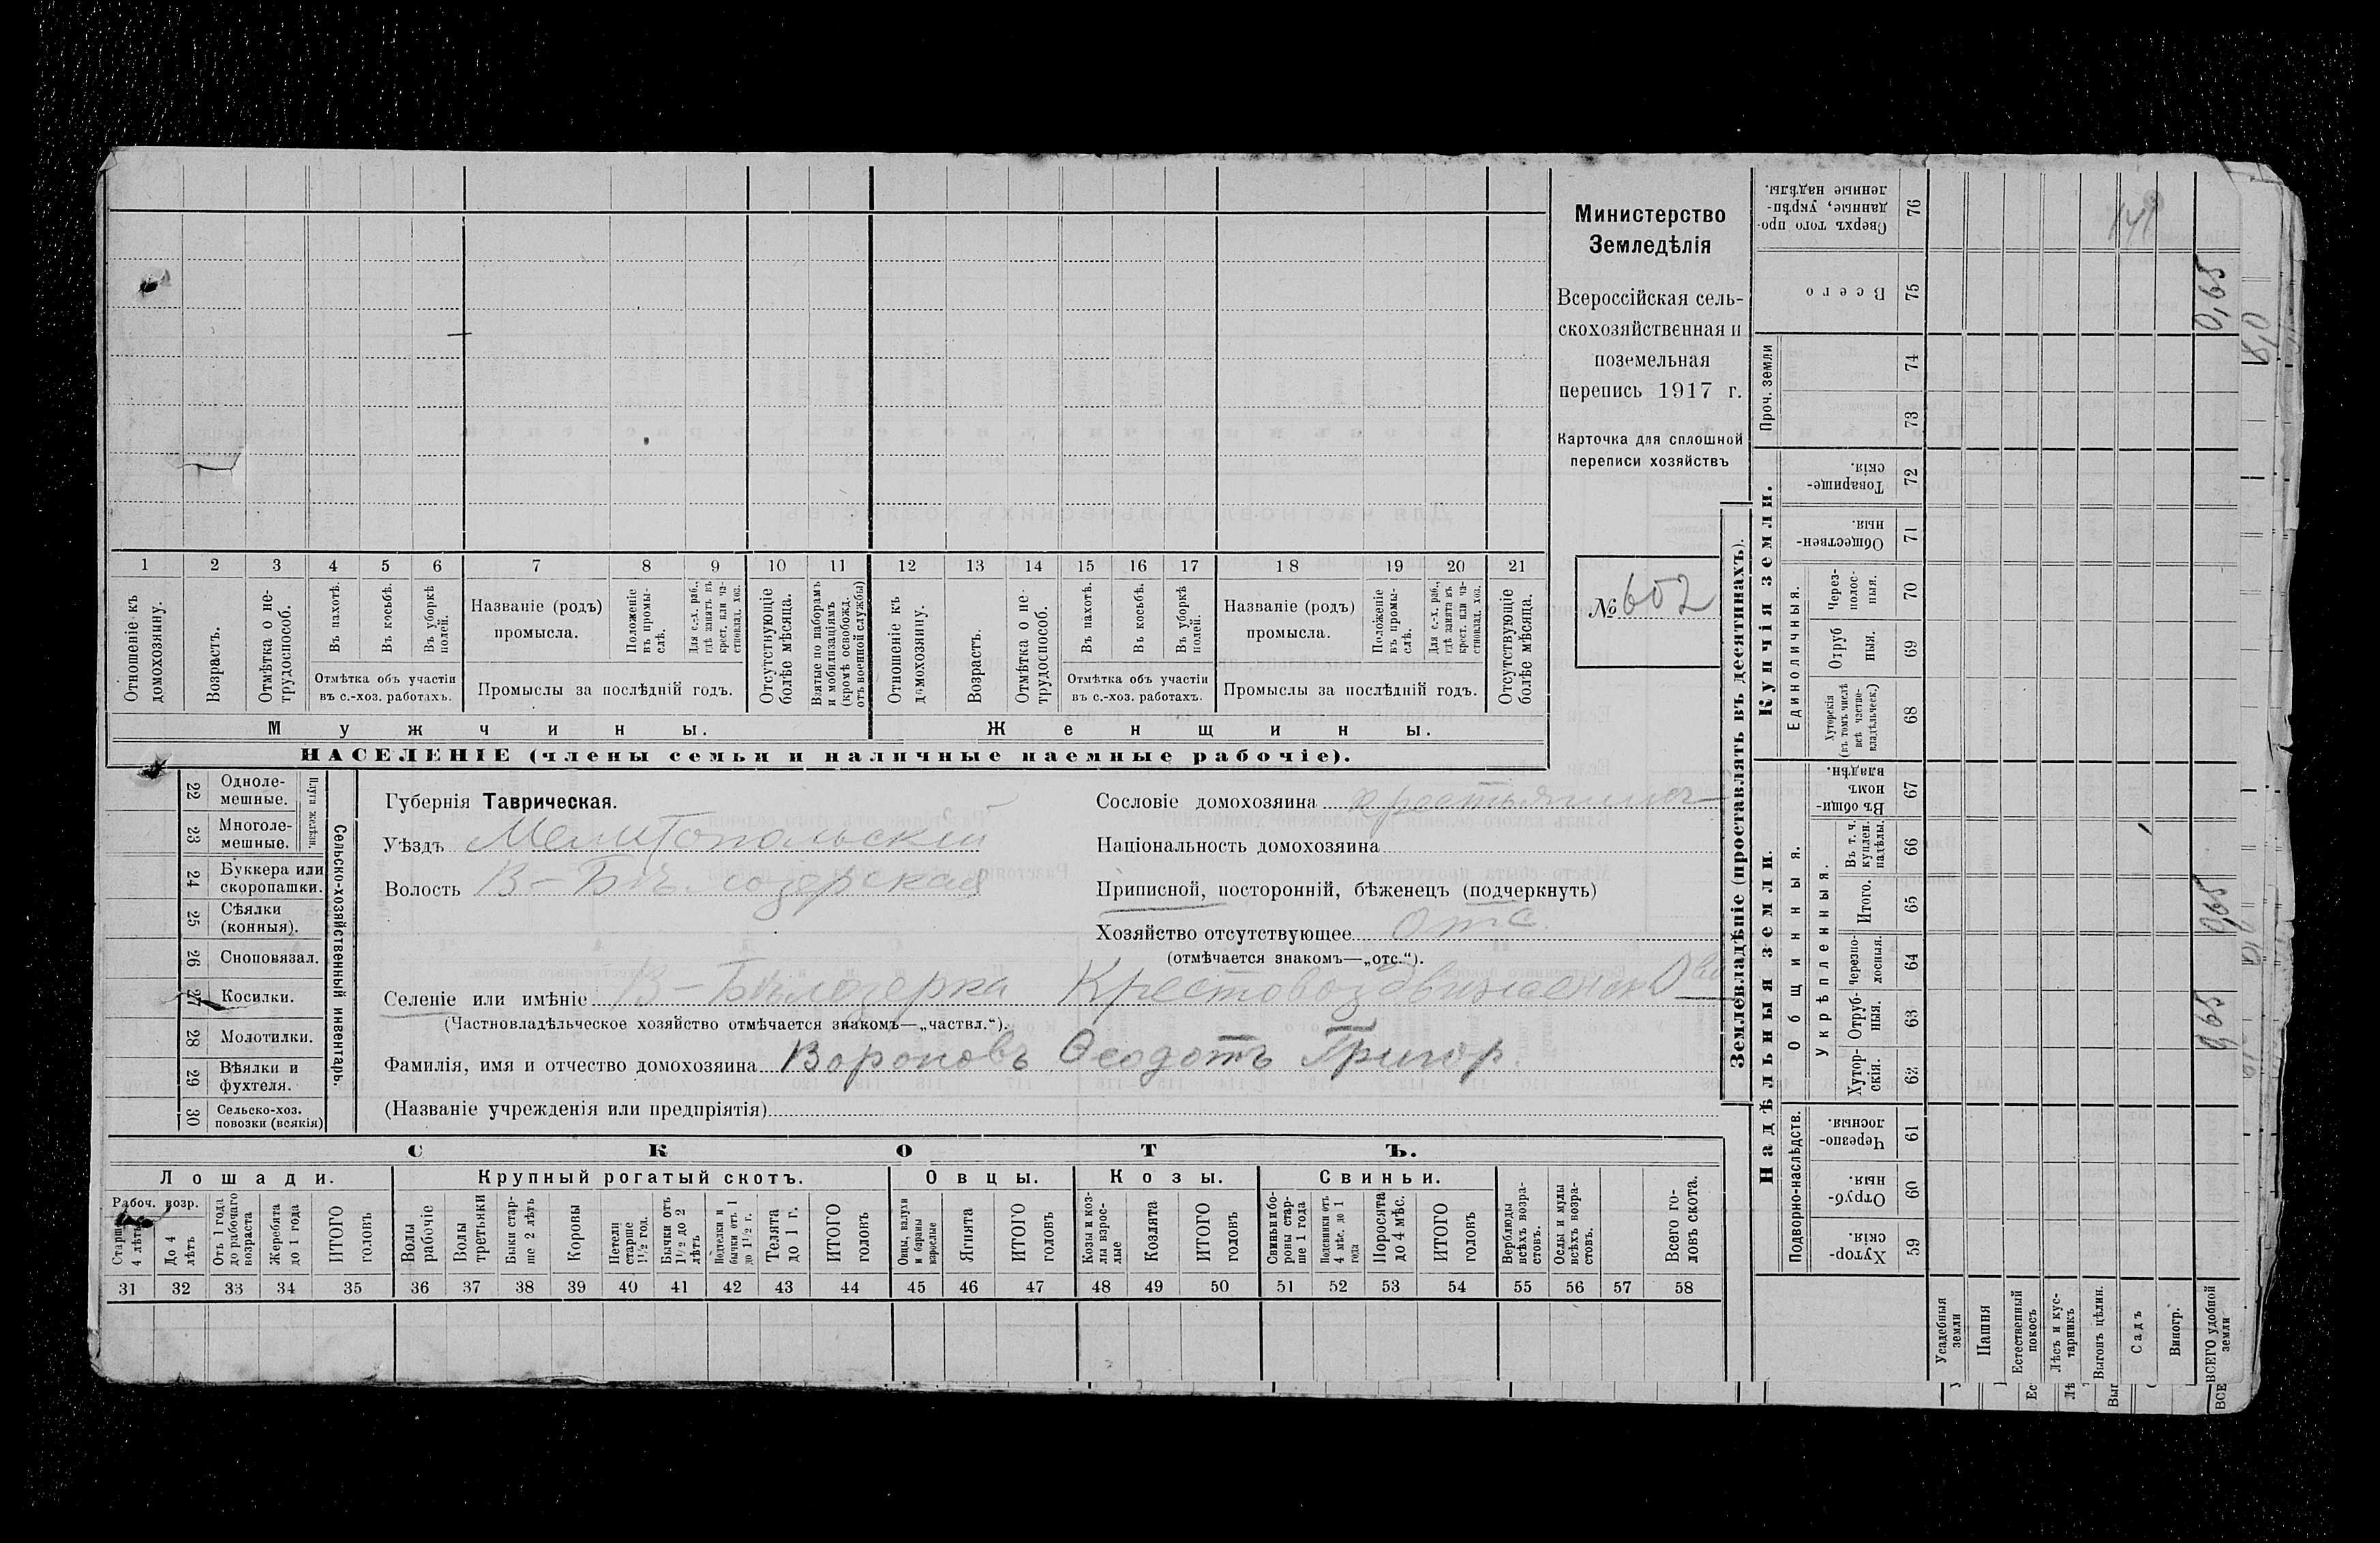 Министерство
Земледѣлія
Всероссійская сель-
скохозяйственная и
поземельная
перепись 1917 г.
Карточка для сплошной
переписи хозяйствъ
№ 602
1 2 3 4 5 6 7 8 9 10 11 12 13 14 15 16 17 18 19 20 21
Отношеніе къ домохозяину.
Возрастъ.
Отмѣтка о не-трудоспособ.
Въ пахотѣ.
Въ косьбѣ.
Въ уборкѣ полей.
Отмѣтка объ участіи
въ с.-хоз. работахъ.
Названіе (родъ)
промысла.
Положеніе въ промы-слѣ.
Для с.-х. раб., гдѣ занятъ въ крест. или ча-стновлад. хоз.
Промыслы за послѣдній годъ.
Отсутствующіе болѣе мѣсяца.
Взятые по наборамъ и мобилизаціямъ (кромѣ освобожд. отъ военной службы)
Отношеніе къ домохозяину.
Возрастъ.
Отмѣтка о не-трудоспособ.
Въ пахотѣ.
Въ косьбѣ.
Въ уборкѣ полей.
Отмѣтка объ участіи
въ с.-хоз. работахъ.
Названіе (родъ)
промысла.
Положеніе въ промы-слѣ.
Для с.-х. раб., гдѣ занята въ крест. или ча-стновлад. хоз.
Промыслы за послѣдній годъ.
Отсутствующіе болѣе мѣсяца.
Мужчины.
Женщины.
НАСЕЛЕНІЕ (члены семьи и наличные наемные рабочіе).
22 Одноле-мешные.
23 Многоле-мешные.
Плуги желѣзн.
24 Буккера или скоропашки.
25 Сѣялки (конныя).
26 Сноповязал.
27 Косилки.
28 Молотилки.
29 Вѣялки и фухтеля.
30 Сельско-хоз. повозки (всякія)
Сельско-хозяйственный инвентарь.
Губернія Таврическая.
Уѣздъ Мелитопольскій
Волость В-Бѣлозерская
Сословіе домохозяина крестьянинъ
Національность домохозяина
Приписной, посторонній, бѣженецъ (подчеркнуть)
Хозяйство отсутствующее Отс.
(отмѣчается знакомъ—„отс.“).
Селеніе или имѣніе В-Бѣлозерка
(Частновладѣльческое хозяйство отмѣчается знакомъ—„частвл.“).
Фамилія, имя и отчество домохозяина Вороновъ Ѳеодотъ Григор.
(Названіе учрежденія или предпріятія)
СКОТЪ.
Лошади. Крупный рогатый скотъ. Овцы. Козы. Свиньи.
Рабоч. возр.
Старше 4 лѣтъ
До 4 лѣтъ
Отъ 1 года до рабочаго возраста
Жеребята до 1 года
ИТОГО головъ
Волы рабочіе
Волы третьяки
Быки стар-ше 2 лѣтъ
Коровы
Нетели старше 1 1/2 год.
Бычки отъ 1 1/2 до 2 лѣтъ
Подтелки и бычки отъ 1 до 1 1/2 г.
Телята до 1 г.
ИТОГО головъ
Овцы, валухи и бараны взрослые
Ягнята
ИТОГО головъ
Козы и коз-лы взрос-лые
Козлята
ИТОГО головъ
Свиньи и бо-ровы стар-ше 1 года
Подсвинки отъ 4 мѣс. до 1 года
Поросята до 4 мѣс.
ИТОГО головъ
Верблюды всѣхъ возра-стовъ.
Ослы и мулы всѣхъ возра-стовъ.
Всего го-ловъ скота.
31 32 33 34 35 36 37 38 39 40 41 42 43 44 45 46 47 48 49 50 51 52 53 54 55 56 57 58
Землевладѣніе (проставлять въ десятинахъ).
Купчія земли.
Надѣльныя земли.
Сверхъ того про-данные, укрѣп-ленные надѣлы. 76
Всего 75 0,65
Проч. земли
74
73
Товарище-скія. 72
Обществен-ныя. 71
Единоличныя.
Через-полос-ныя. 70
Отруб ныя. 69
Хуторскія (въ томъ числѣ всѣ частно-владѣльческ.) 68
Общинныя.
Въ общи-номъ владѣн. 67
Укрѣпленныя.
Въ т. ч. куплен. надѣлы. 66
Итого. 65 0,65
Черезпо-лосныя. 64
Отруб-ныя. 63
Хутор-скія. 62
Подворно-наслѣдств.
Черезпо-лосныя. 61
Отруб-ныя. 60
Хутор-скія. 59
Усадебныя земли
Пашня
Естественный покосъ
Лѣсъ и кус-тарникъ
Выгонъ цѣлин.
Садъ
Виногр.
ВСЕГО удобной земли